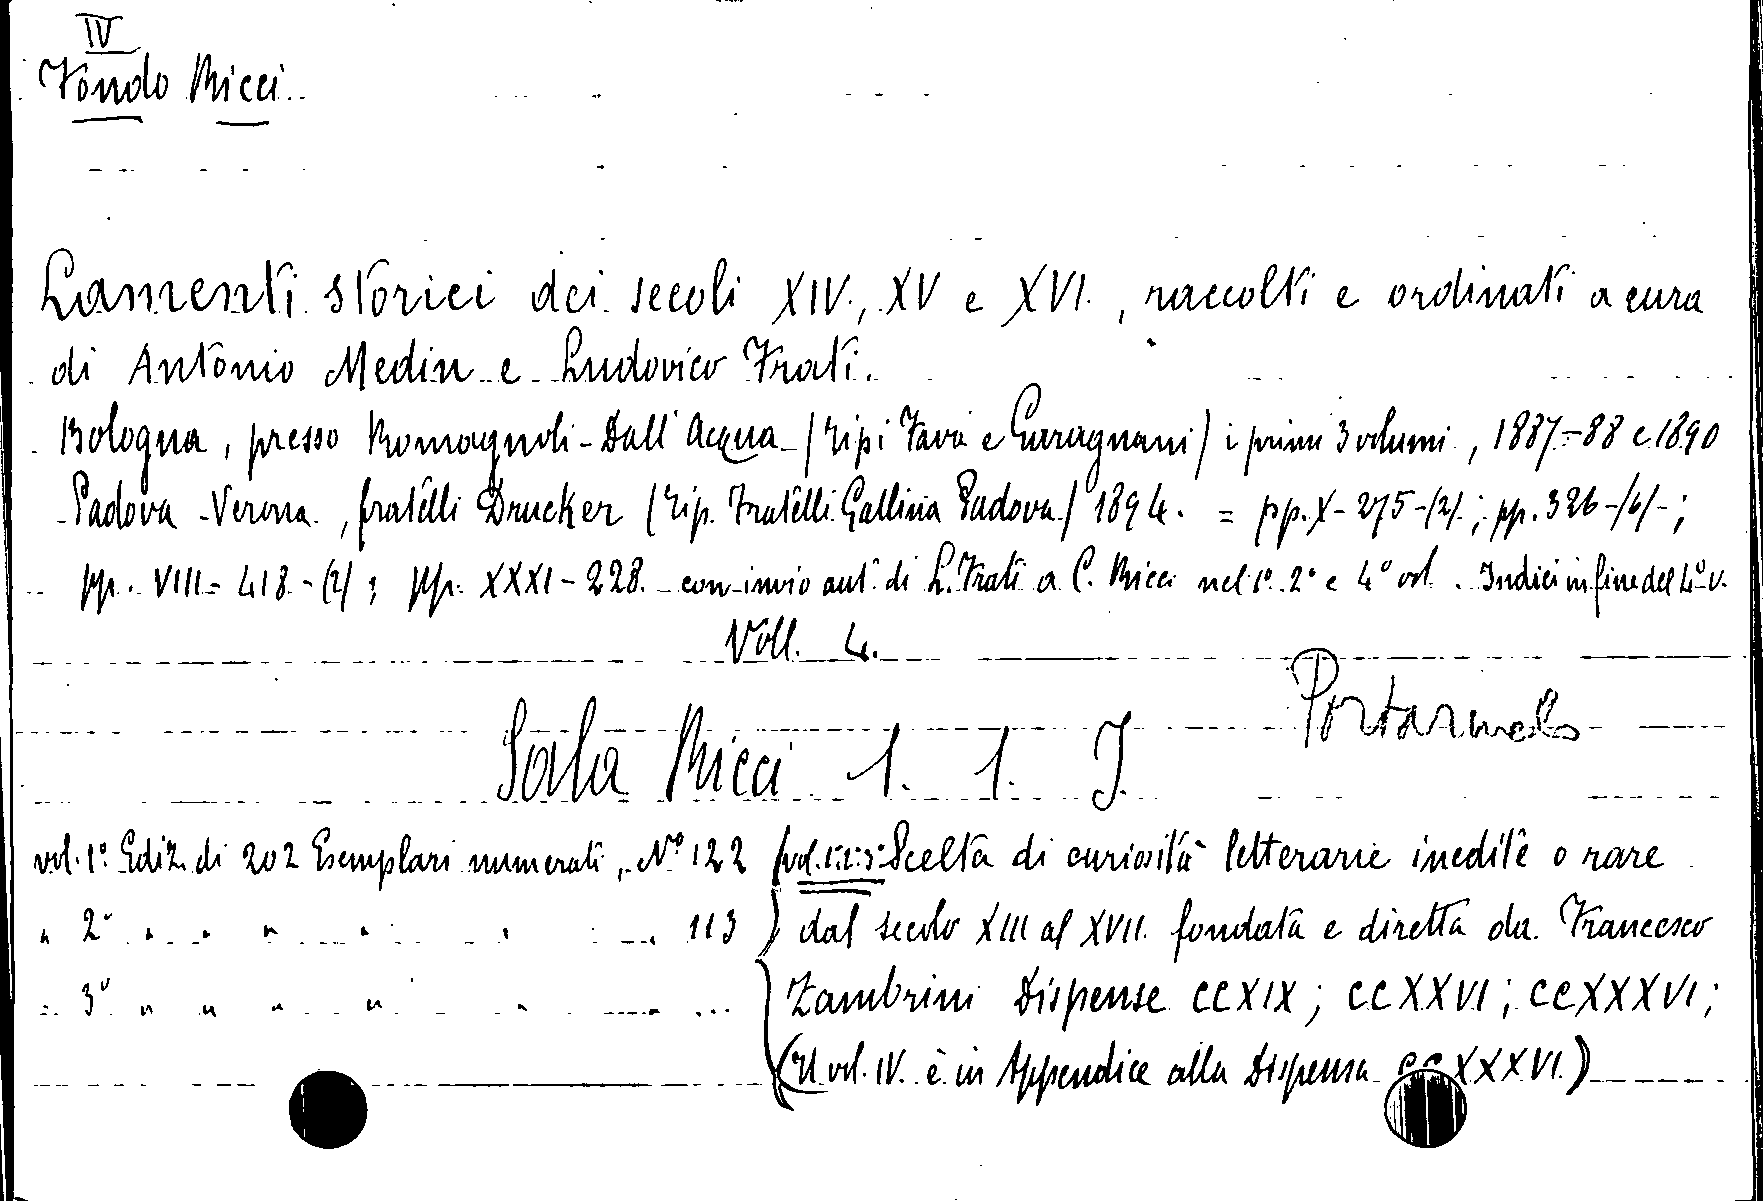 IV
Fondo Ricci.
Lamenti storici dei secoli XIV, XV e XVI, raccolti e ordinati a cura
di Antonio Medin e Ludovico Frati.
Bologna, presso Romagnoli-Dall'Acqua (Tipi Fava e Garagnani) i primi 3 volumi, 1887-88 e 1890
Padova-Verona, fratelli Drucker (Tip. Fratelli Gallina Padova) 1894. = pp. X-275-(2); pp. 326-(6)-;
pp. VIII-418-(2); pp. XXXI-228. con invio aut. di L. Frati a C. Ricci nel 1º. 2º e 4º vol. Indici in fine del 4º v.
Voll. 4.
Sala Ricci 1. 1. J.
vol. 1º Ediz. di 202 Esemplari numerati, Nº 122 (vol. 1º.2º.3º Scelta di curiosità letterarie inedite o rare
" 2º " " " " " " 113 dal secolo XIII al XVII fondata e diretta da Francesco
" 3º " " " " " ... Zambrini Dispense CCXIX; CCXXVI; CCXXXVI;
(Il vol. IV. è in Appendice alla Dispensa CCXXXVI)